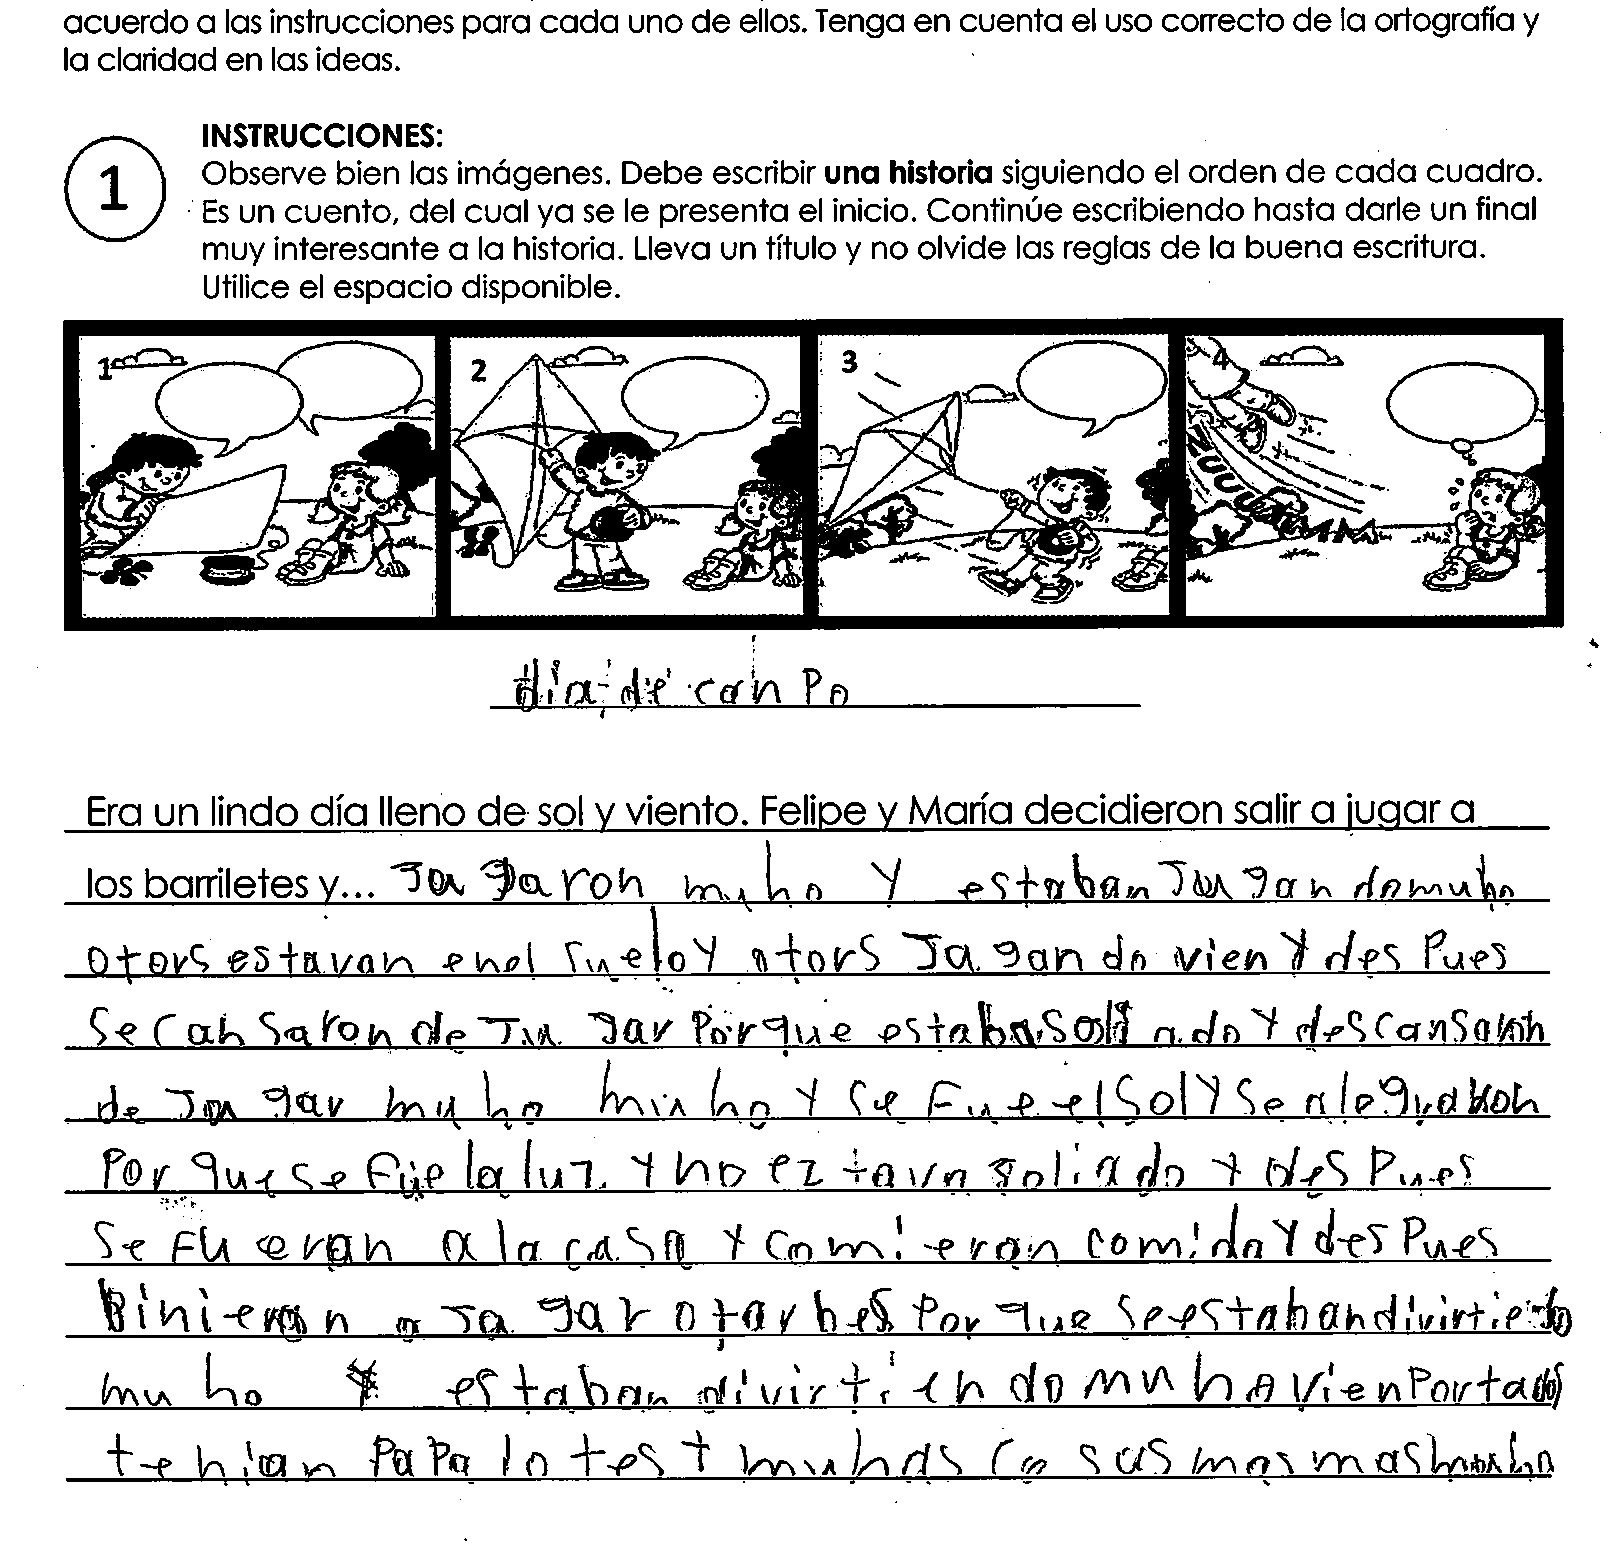 acuerdo a las instrucciones para cada uno de ellos. Tenga en cuenta el uso correcto de la ortografía y
la claridad en las ideas.
INSTRUCCIONES:
1
Observe bien las imágenes. Debe escribir una historia siguiendo el orden de cada cuadro.
Es un cuento, del cual ya se le presenta el inicio. Continúe escribiendo hasta darle un final
muy interesante a la historia. Lleva un título y no olvide las reglas de la buena escritura.
Utilice el espacio disponible.
1 2 3 4
dia de canpo
Era un lindo día lleno de sol y viento. Felipe y María decidieron salir a jugar a
los barriletes y... Jugaron muho y estaban Jugan domuho
otors estavan enel suelo y otors Jagando vien y des Pues
se cansaron de Ju gar Por que estaba soli ado y descansaron
de Jugar muho muho y se Fue el Sol y se alegraron
Por que se Fue la luz y no eztava soliado y des Pues
se Fueran a la casa y comieran comida y des Pues
Binieran a Jagar otarbes Por que se estaban divirtiendo
muho y estaban divirtiendo muho vien Portados
tenian PaPalotes y muhas cosas mas mas muho